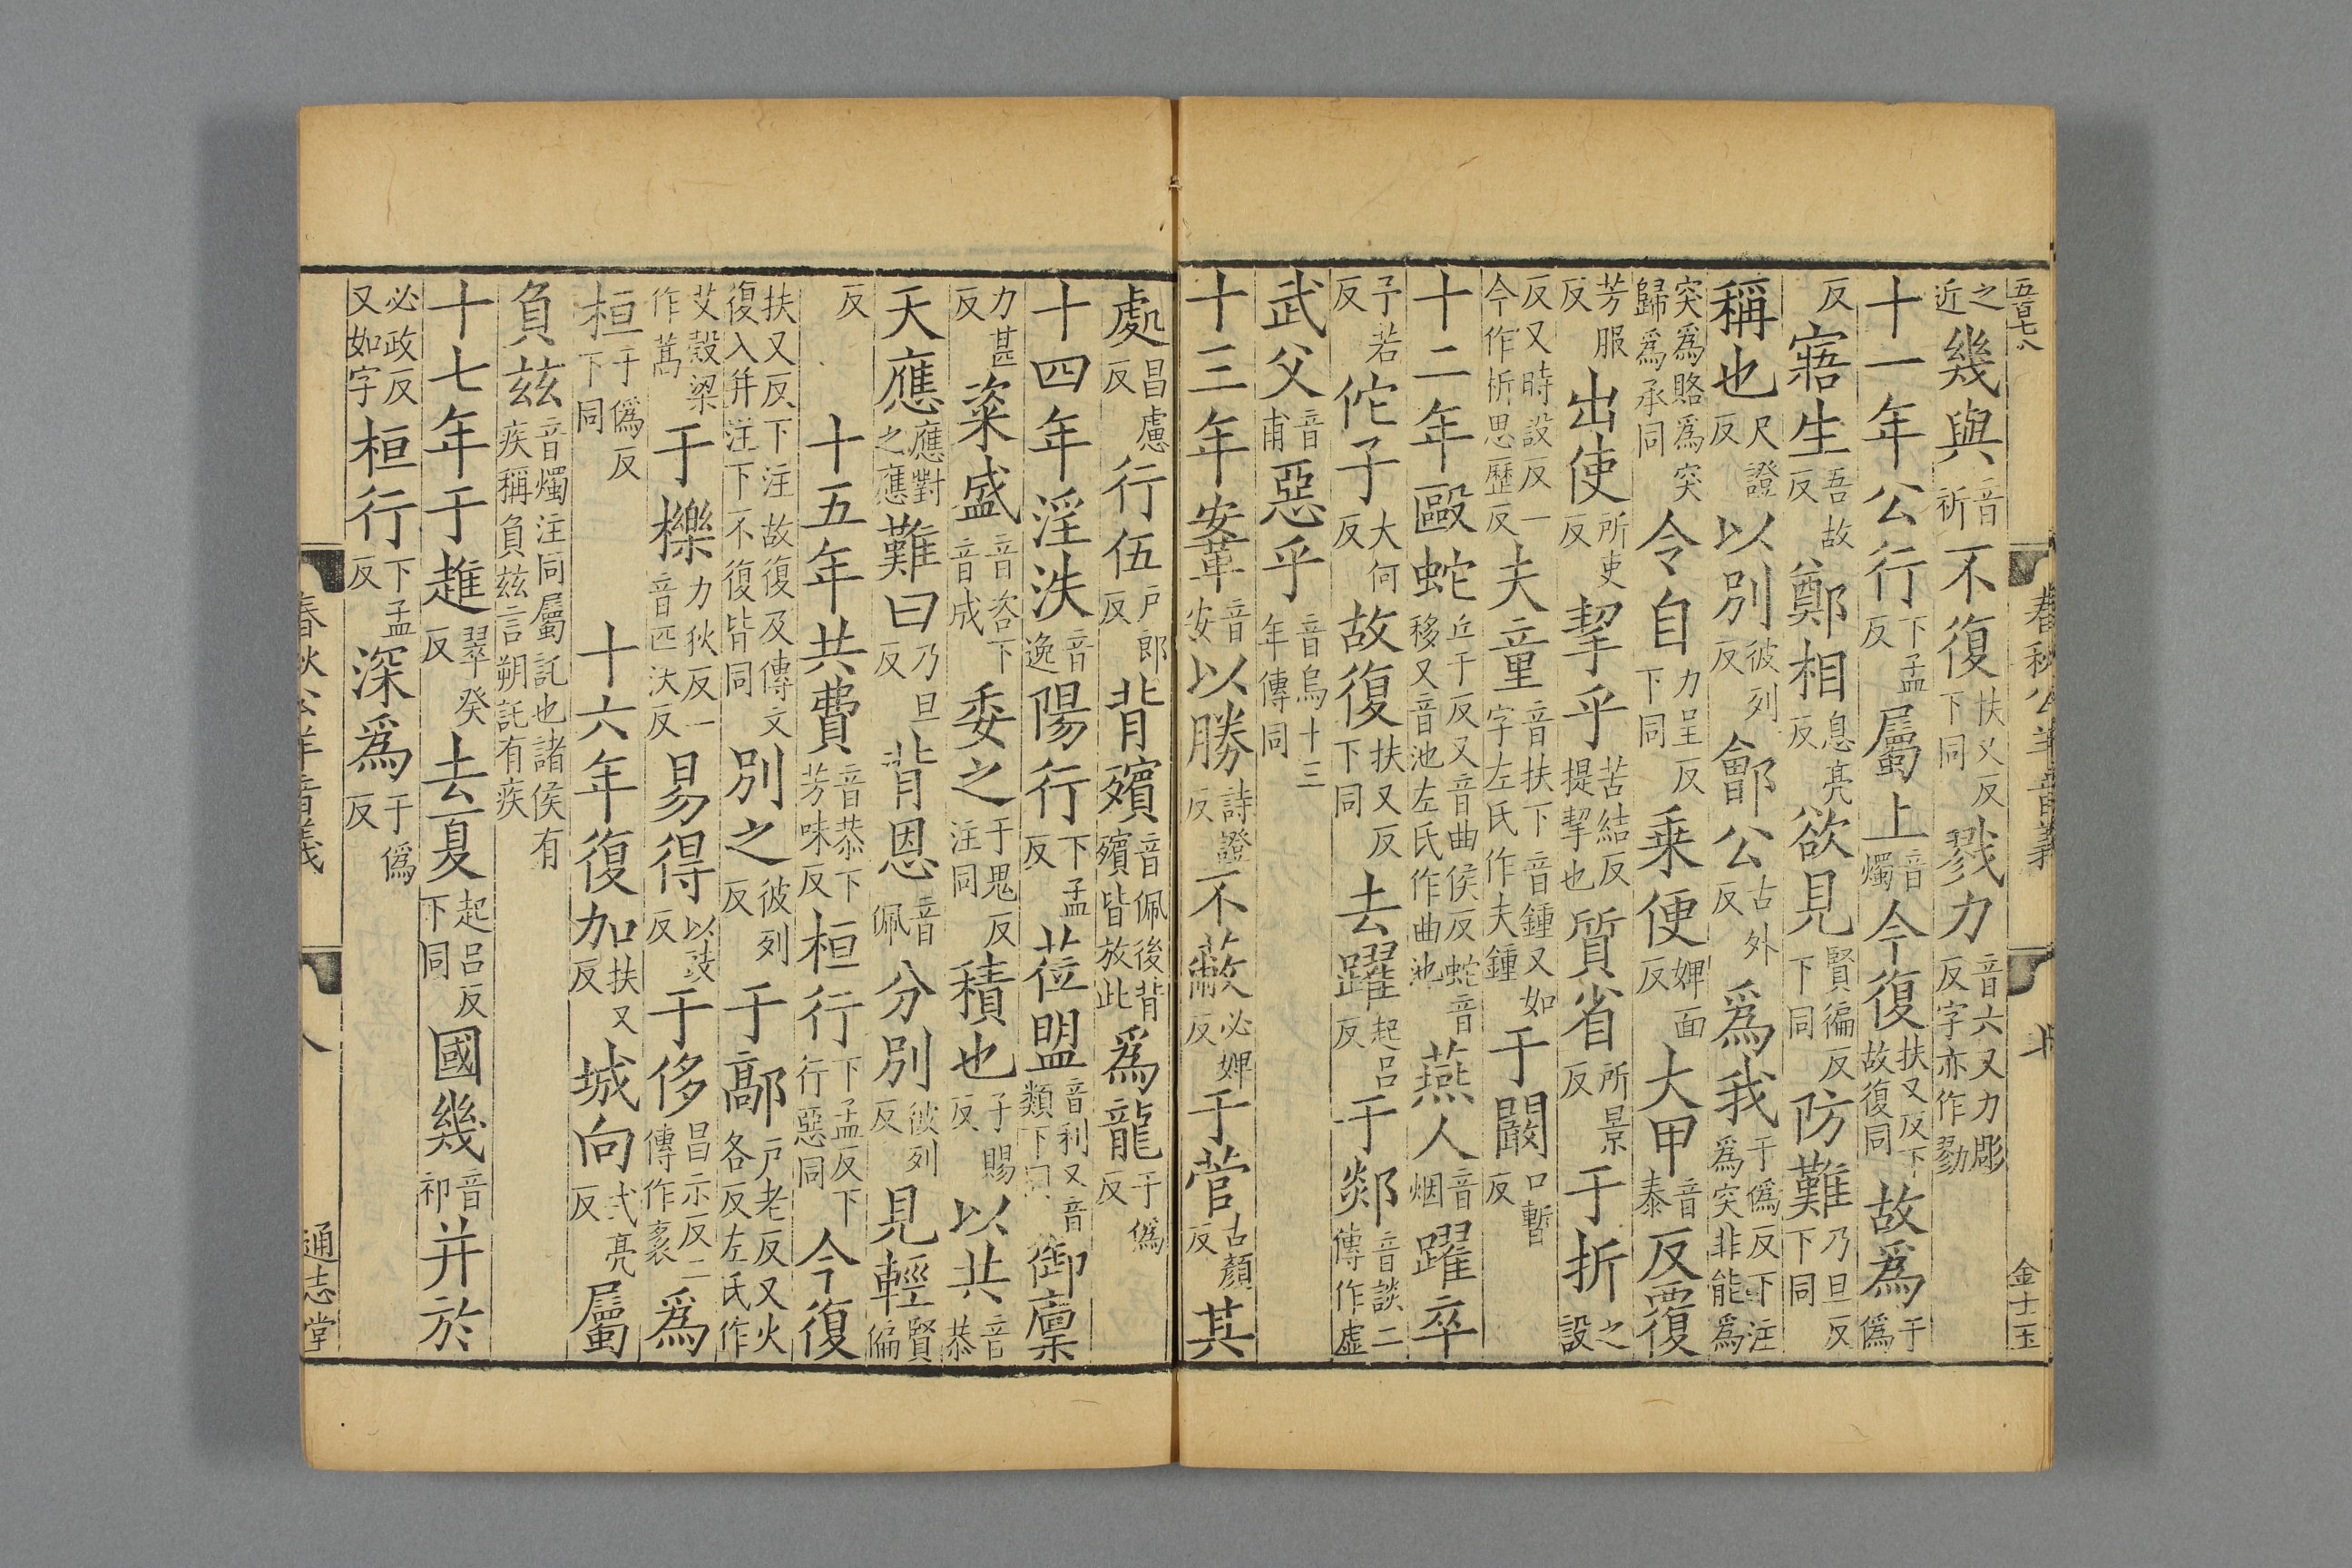 五百七八 春秋公羊音義 金士玉
之近幾與音祈不復扶又反下同戮力音六又力彫反字亦作勠
十一年公行下孟反屬上音燭今復扶又反下故復同故爲于僞
反寤生吾故反鄭相息亮反欲見賢徧反下同防難乃旦反下同
稱也尺證反以別彼列反鄶公古外反爲我于僞反下注爲突非能爲
突爲賂爲突歸爲承同令自力呈反下同乗便婢面反大甲音泰反覆
芳服反出使所吏反挈乎苦結反提挈也質省所景反于折之設
反又時設反一今作析思歷反夫童音扶下音鍾又如字左氏作夫鍾于闞口暫反
十二年毆蛇丘于反又音曲侯反蛇音移又音池左氏作曲池燕人音烟躍卒
予若反佗子大何反故復扶又反下同去躍起呂反于郯音談二傳作虛
武父音甫惡乎音烏十三年傳同
十三年鞌音安以勝詩證反不蔽必婢反于菅古顏反其
處昌慮反行伍戸郎反背殯音佩後背殯皆放此爲龍于僞反
十四年淫泆音逸陽行下孟反莅盟音利又音類下同御廩
力甚反粢盛音咨下音成委之于鬼反注同積也子賜反以共音恭
天應應對之應難曰乃旦反背恩音佩分別彼列反見輕賢偏
反 十五年共費音恭下芳味反桓行下孟反下行惡同今復
扶又反下注故復及傳文復入并注下不復皆同別之彼列反于鄗戸老反又火各反左氏作
艾穀梁作蒿于櫟力狄反一音匹沃反易得以豉反于侈昌示反二傳作袤爲
桓于僞反下同 十六年復加扶又反城向式亮反屬
負茲音燭注同屬託也諸侯有疾稱負茲言朔託有疾
十七年于趡翠癸反去夏起呂反下同國幾音祁并於
必政反又如字桓行下孟反深爲于僞反
春秋公羊音義 八 通志堂